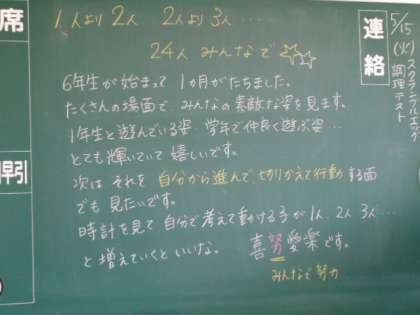 席
早引
1人より2人 2人より3人…
24人みんなで☆☆
6年生が始まって1か月がたちました。
たくさんの場面で、みんなの素敵な姿を見ます。
1年生と遊んでいる姿、学年で仲良く遊ぶ姿…
とても輝いていて嬉しいです。
次は、それを自分から進んで、切りかえて行動する面
でも見たいです。
時計を見て自分で考えて動ける子が1人、2人、3人…
と増えていくといいな。 喜努愛楽です。
みんなで努力
連絡
5/15(火)
調理テスト